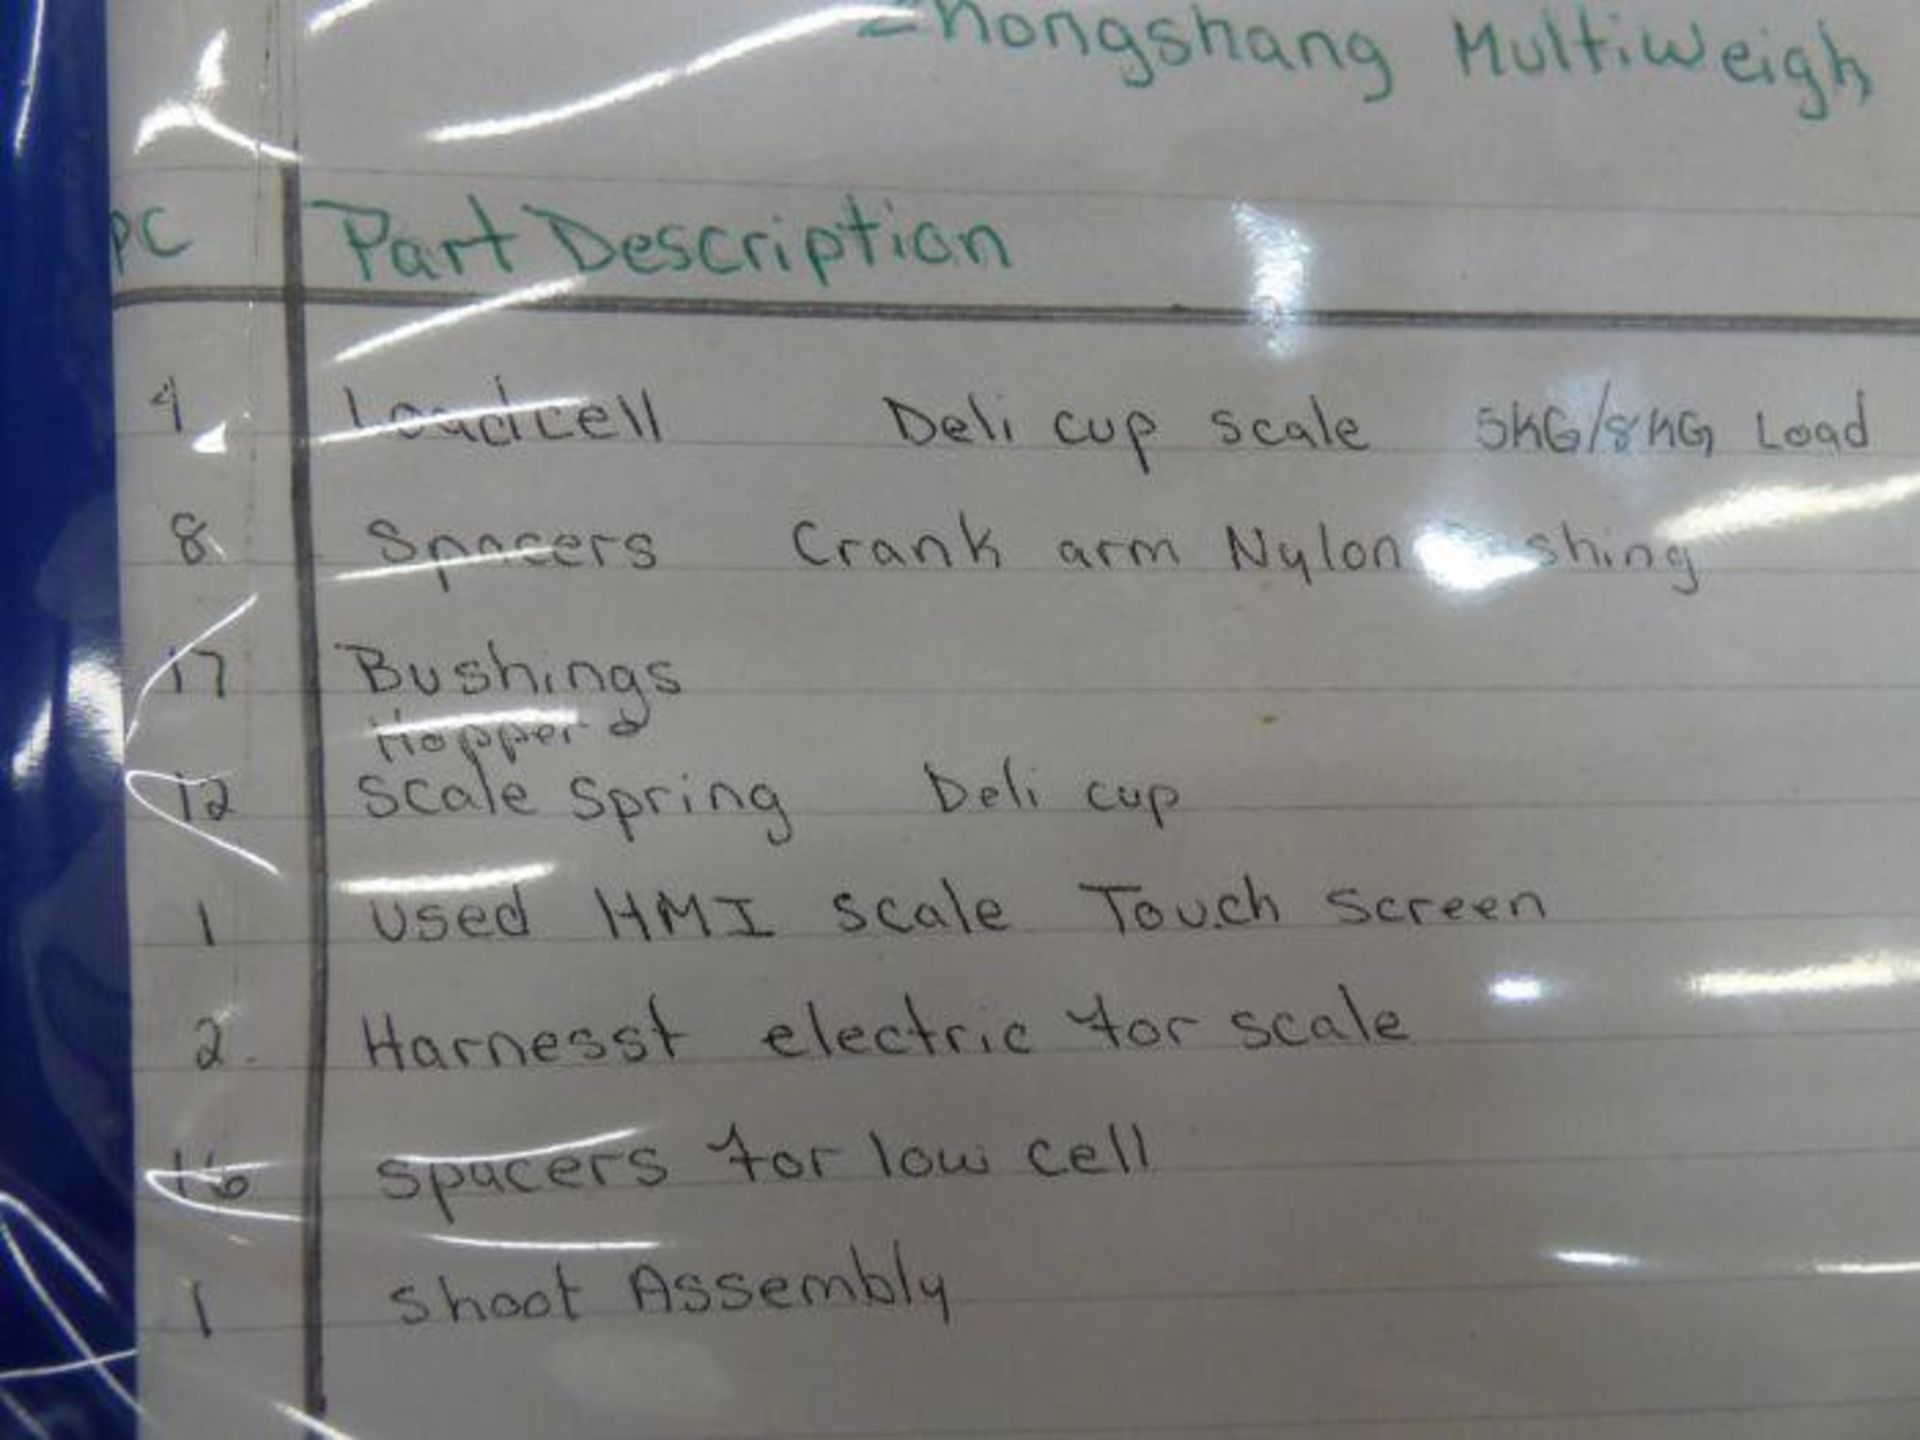 Zhongshang Multiweigh
PC Part Description
4 Loadcell Deli cup scale 5KG/8KG Load
8 Spacers Crank arm Nylon
17 Bushings
Hopper
12 Scale Spring Deli cup
1 Used HMI scale Touch Screen
2 Harnesst electric for scale
16 spacers for low cell
1 shoot Assembly